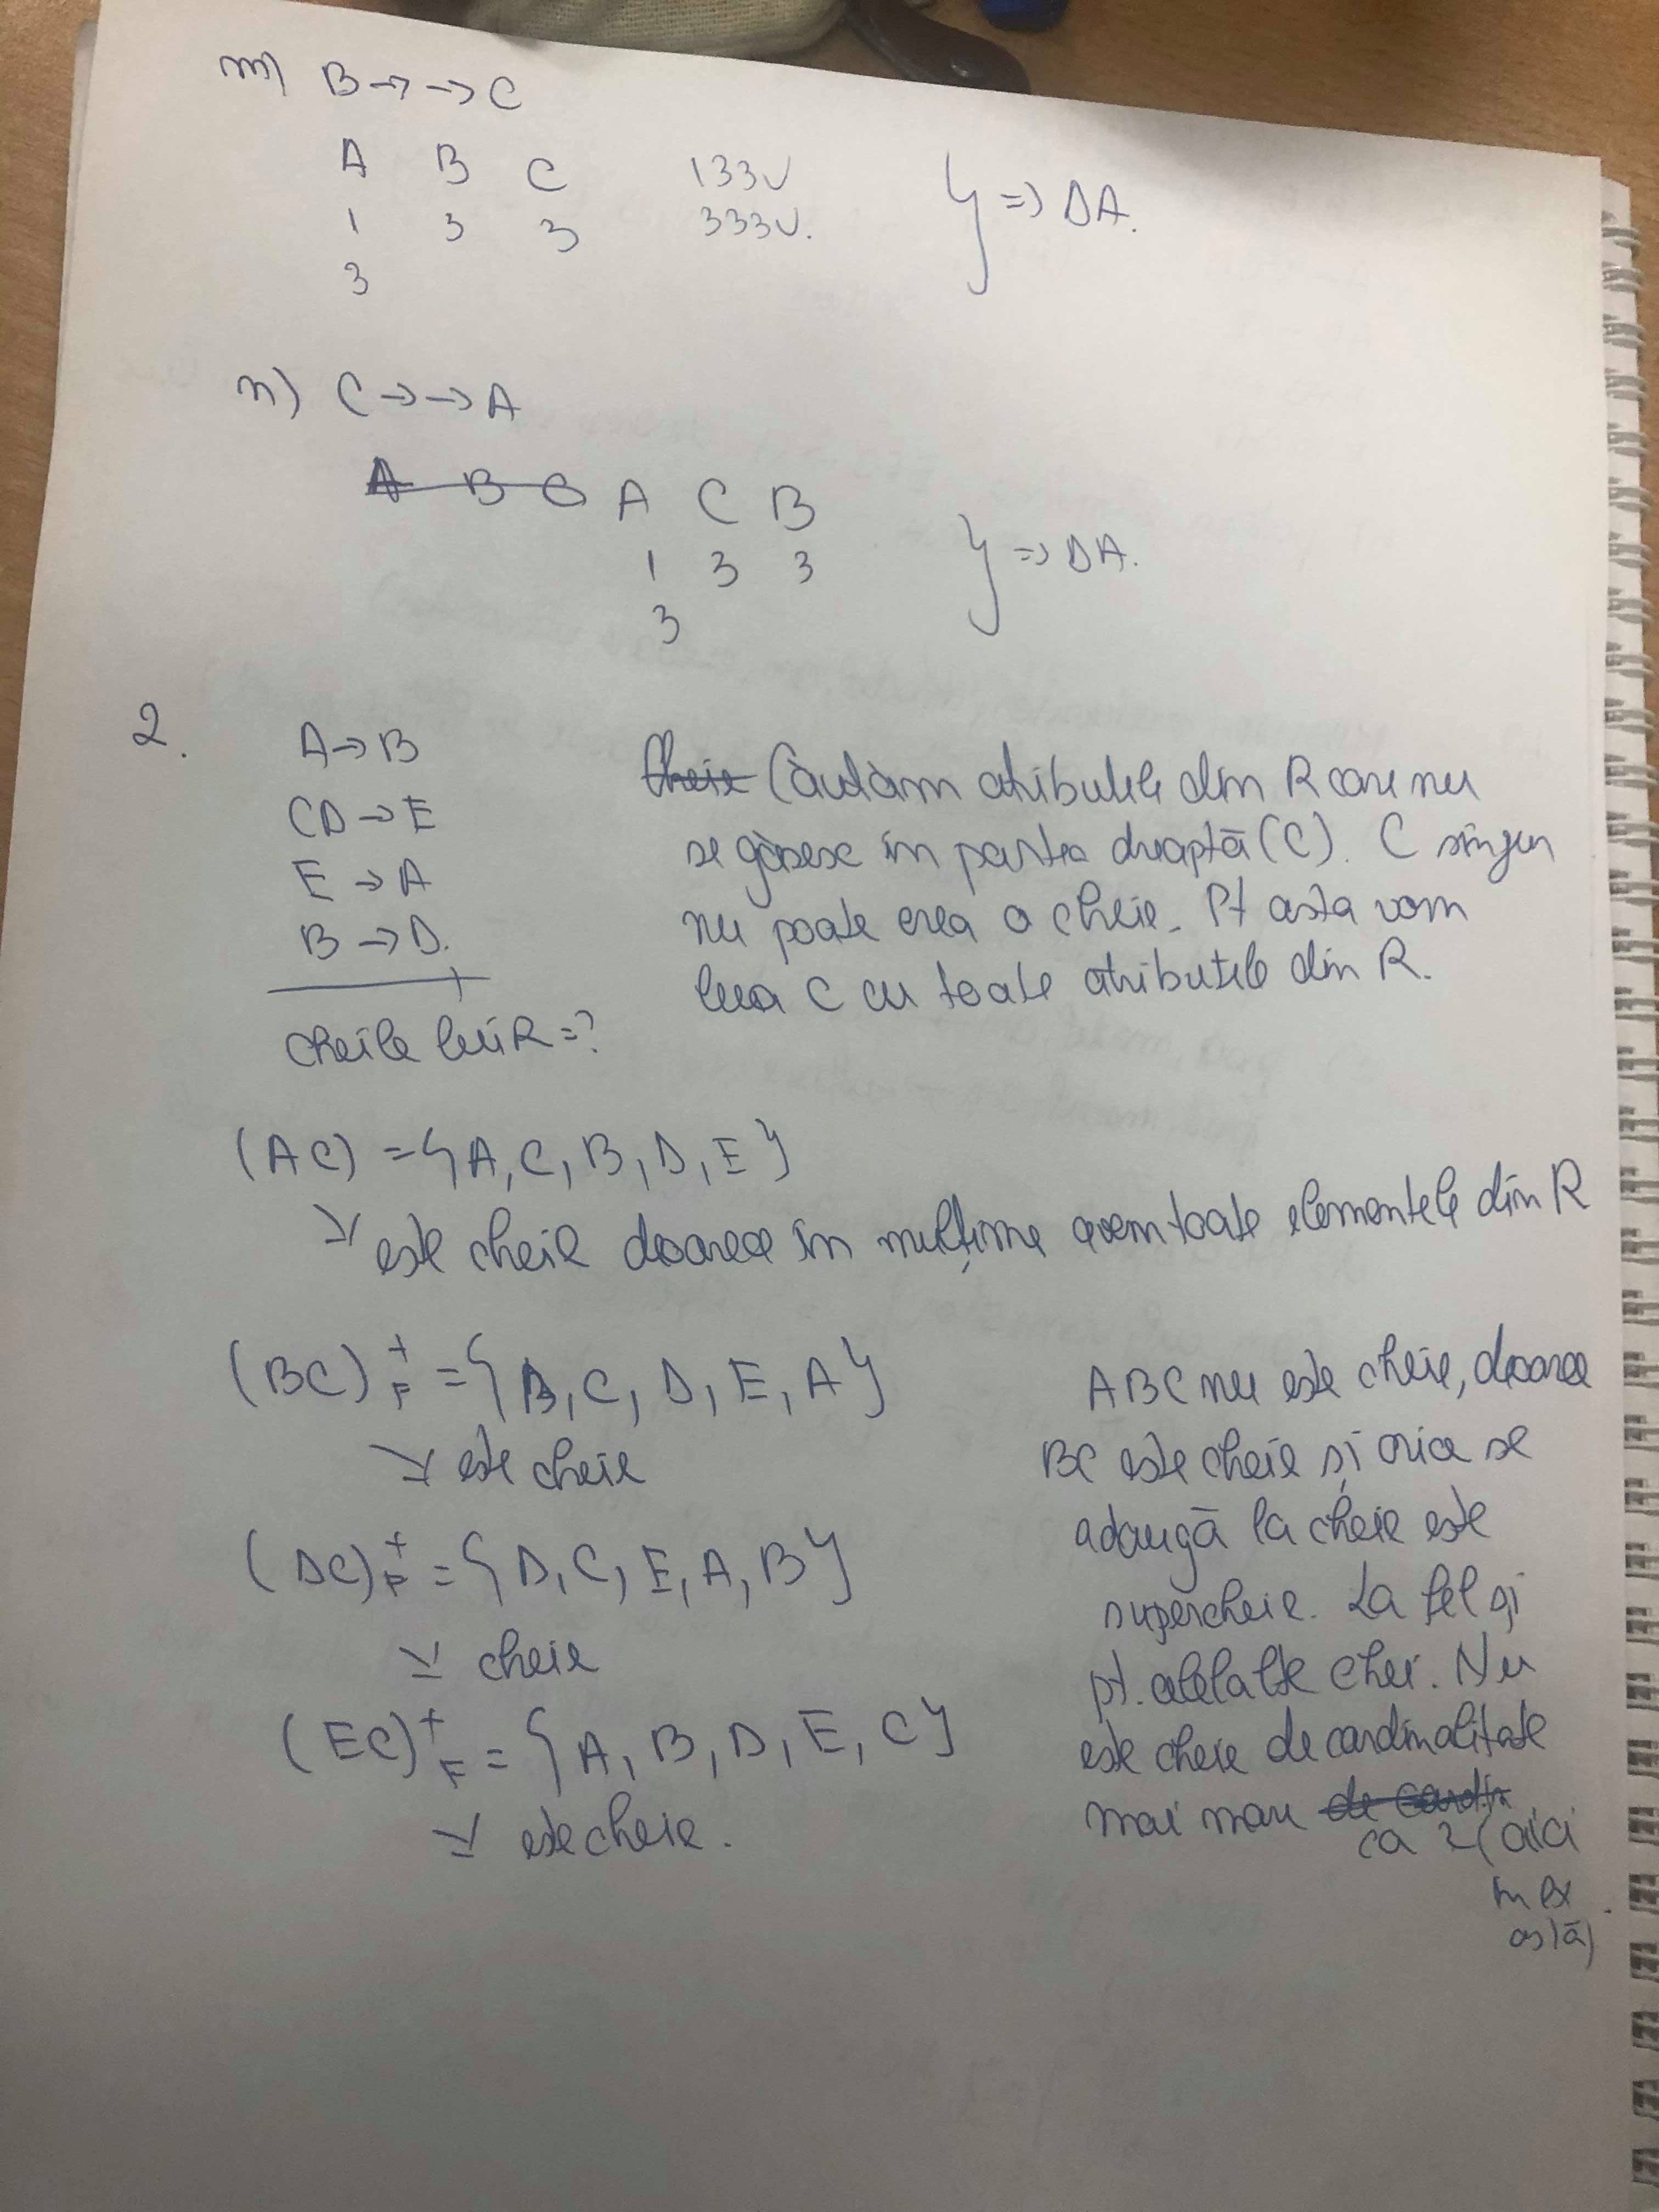 m) B→→C
A B C 133✓
1 3 3 333✓. } => DA.
3
n) C→→A
A B C A C B
1 3 3 } => DA.
3
2.
A→B
CD→E
E→A
B→D.
cheile lui R=?
Cheie Căutăm atributele din R care nu
se găsesc în partea dreaptă (C). C singur
nu poate crea o cheie. Pt asta vom
lua C cu toate atributele din R.
(AC) = {A, C, B, D, E}
↘ este cheie deoarece în mulțime avem toate elementele din R
(BC)⁺F = {B, C, D, E, A}
↘ este cheie
(DC)⁺F = {D, C, E, A, B}
↘ cheie
(EC)⁺F = {A, B, D, E, C}
↘ este cheie.
ABC nu este cheie, deoarece
BC este cheie și orice se
adaugă la cheie este
supercheie. La fel și
pt. celelalte chei. Nu
este cheie de cardinalitate
mai mare de cardin
ca 2 (aici
în ex
ăsta)